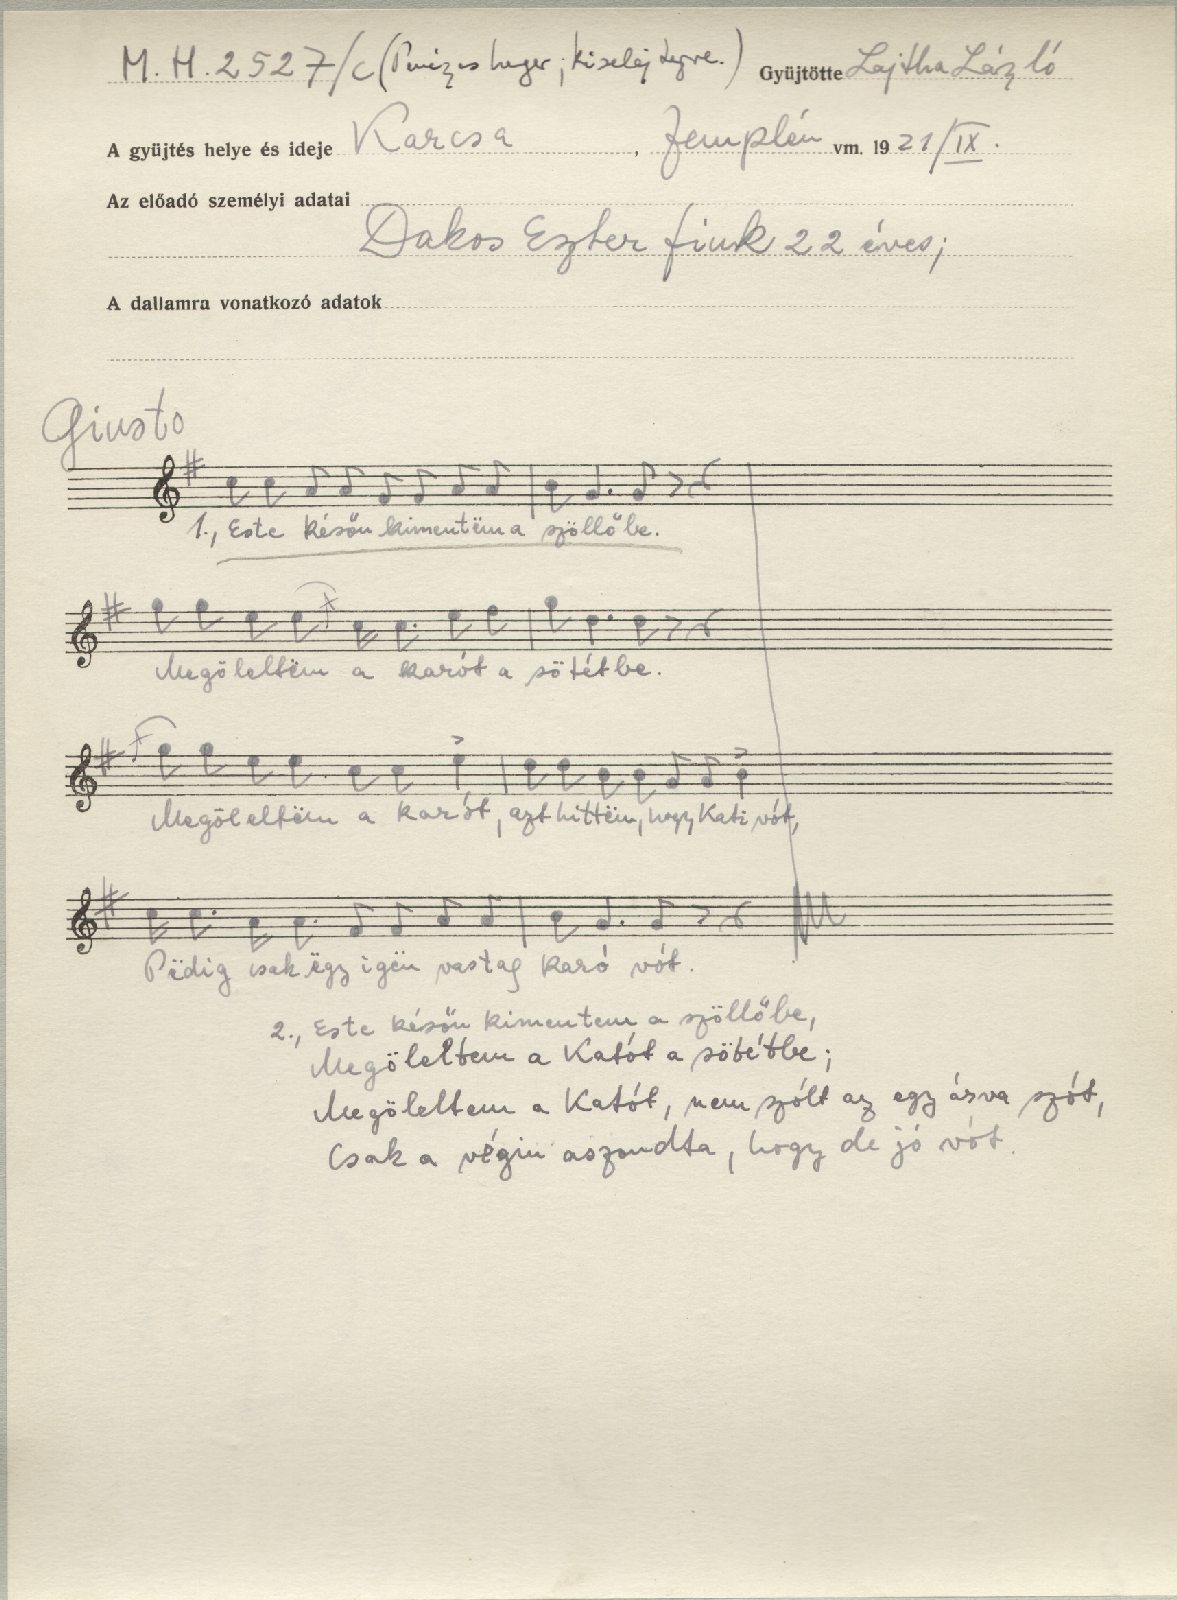 M. H. 2527/c ( henger; Gyüjtötte Lajtha László
A gyüjtés helye és ideje Karcsa, Zemplén vm. 1921/IX.
Az előadó személyi adatai
Dakos Eszter 22 éves;
A dallamra vonatkozó adatok
Giusto
1., Este későn kimentëm a szöllőbe.
Megöleltëm a karót a sötétbe.
Megöleltëm a karót, azt hittëm, hogy Kati vót,
Pëdig csak ëgy igën vastag karó vót.
2., Este későn kimentem a szöllőbe,
Megöleltem a Katót a sötétbe;
Megöleltem a Katót, nem szólt az egy árva szót,
Csak a végin aszondta, hogy de jó vót.